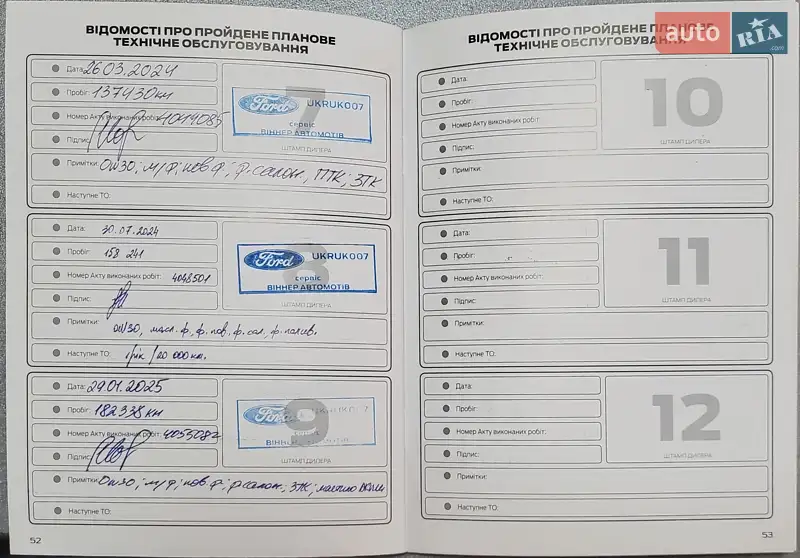 ВІДОМОСТІ ПРО ПРОЙДЕНЕ ПЛАНОВЕ
ТЕХНІЧНЕ ОБСЛУГОВУВАННЯ
Дата: 26.03.2024
Пробіг: 137430 км
Номер Акту виконаних робіт: 4041085
Підпис:
7
Ford UKRUK007
сервіс
ВІННЕР АВТОМОТІВ
ШТАМП ДИЛЕРА
Примітки: 0w30; м/ф; пов.ф; ф.салон., ПТК; ЗТК
Наступне ТО:
Дата: 30.07.2024
Пробіг: 158 241
Номер Акту виконаних робіт: 4048501
Підпис:
8
Ford UKRUK007
сервіс
ВІННЕР АВТОМОТІВ
ШТАМП ДИЛЕРА
Примітки: 0w30, масл.ф, ф.пов, ф.сал, ф.палив.
Наступне ТО: 1рік/20 000км.
Дата: 29.01.2025
Пробіг: 182338 км
Номер Акту виконаних робіт: 4055082
Підпис:
9
Ford UKRUK007
ВІННЕР АВТОМОТІВ
ШТАМП ДИЛЕРА
Примітки: 0w30; м/ф; пов.ф; ф.салон.; ЗТК; мастило
Наступне ТО:
52
ВІДОМОСТІ ПРО ПРОЙДЕНЕ ПЛАНОВЕ
ТЕХНІЧНЕ ОБСЛУГОВУВАННЯ
auto RIA.com
Дата:
Пробіг:
Номер Акту виконаних робіт:
Підпис:
10
ШТАМП ДИЛЕРА
Примітки:
Наступне ТО:
Дата:
Пробіг:
Номер Акту виконаних робіт:
Підпис:
11
ШТАМП ДИЛЕРА
Примітки:
Наступне ТО:
Дата:
Пробіг:
Номер Акту виконаних робіт:
Підпис:
12
ШТАМП ДИЛЕРА
Примітки:
Наступне ТО:
53